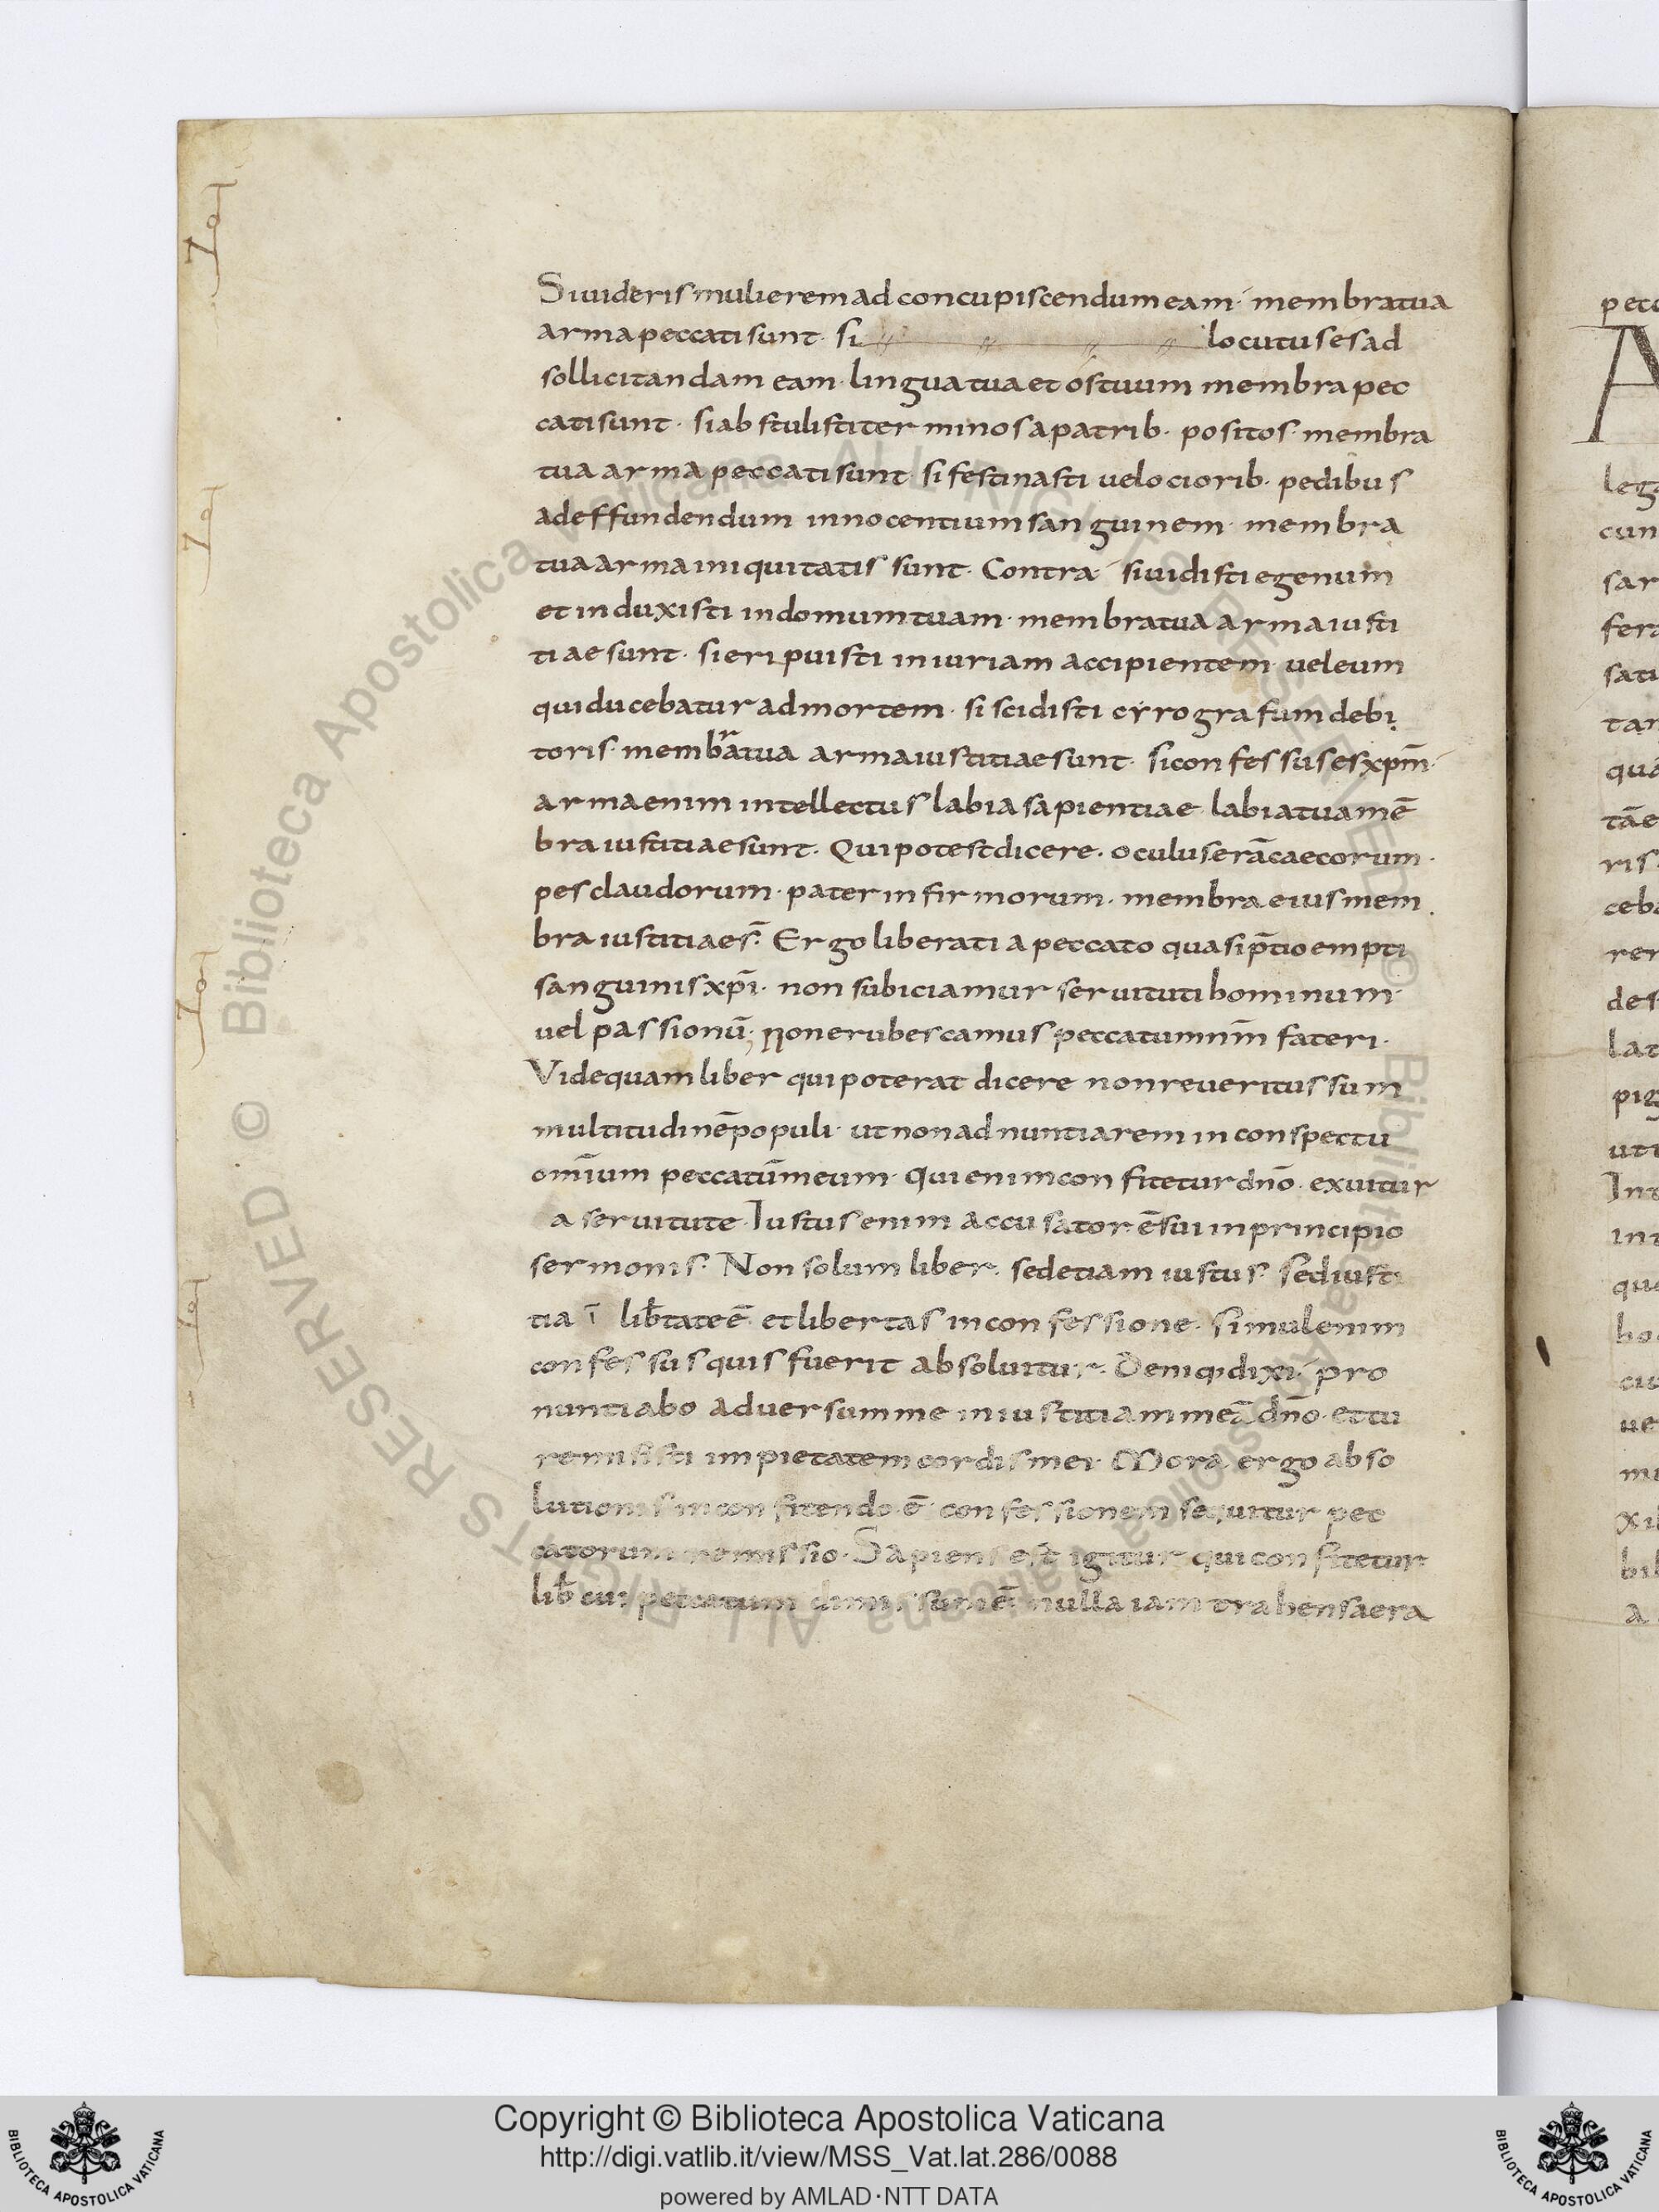 Siuideris mulierem ad concupiscendum eam· membra tua
arma peccati sunt· si locutus es ad
sollicitandam eam· lingua tua et os tuum membra pec
cati sunt· si abstulisti terminos a patrib· positos· membra
tua arma peccati sunt· si festinasti uelociorib· pedibus
ad effundendum innocentium sanguinem· membra
tua arma iniquitatis sunt· Contra· si uidisti egenum
et induxisti in domum tuam· membra tua arma iusti
tiae sunt· si eripuisti iniuriam accipientem· uel eum
qui ducebatur ad mortem· si scidisti cyrografum debi
toris· membra tua arma iustitiae sunt· si confessus es xpm̄·
arma enim intellectus labia sapientiae· labia tua mē
bra iustitiae sunt· Qui potest dicere· oculus erā caecorum·
pes claudorum· pater infirmorum· membra eius mem
bra iustitiae s̄· Ergo liberati a peccato quasi p̄tio empti
sanguinis xp̄i· non subiciamur seruituti hominum·
uel passionū; non erubescamus peccatum nr̄m fateri·
Vide quam liber qui poterat dicere non reueritus sum
multitudinē populi· ut non adnuntiarem in conspectu
omīum peccatū meum· Qui enim confitetur dn̄o· exuitur
a seruitute· Iustus enim accusator ē sui in principio
sermonis· Non solum liber· sed etiam iustus· sed iusti
tia ī lib̄tate ē· et libertas in confessione· simul enim
confessus quis fuerit absoluitur· Deniq; dixi· pro
nuntiabo aduersum me iniustitiam meā dn̄o· et tu
remisisti impietatem cordis mei· Mora ergo abso
lutionis in confitendo ē· confessionem sequitur pec
catorum remissio· Sapiens est igitur qui confitetur
lib̄ cui peccatum dimissum ē· nulla iam trahens aera
Copyright © Biblioteca Apostolica Vaticana
http://digi.vatlib.it/view/MSS_Vat.lat.286/0088
powered by AMLAD·NTT DATA